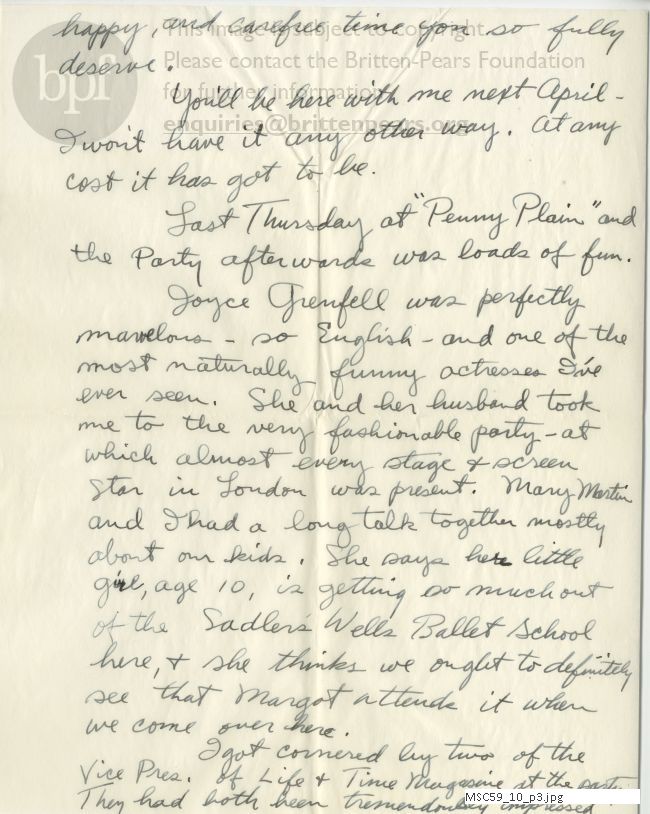 happy, and carefree time you so fully
deserve.
You'll be here with me next April -
I won't have it any other way. At any
cost it has got to be.
Last Thursday at "Penny Plain" and
the Party afterwards was loads of fun.
Joyce Grenfell was perfectly
marvelous - so English - and one of the
most naturally funny actresses I've
ever seen. She and her husband took
me to the very fashionable party - at
which almost every stage & screen
star in London was present. Mary Martin
and I had a long talk together mostly
about our kids. She says her little
girl, age 10, is getting so much out
of the Sadler's Wells Ballet School
here, & she thinks we ought to definitely
see that Margot attends it when
we come over here.
I got cornered by two of the
Vice Pres. of Life & Time Magazine at the party.
They had both been tremendously impressed
bpf
This image is subject to copyright.
Please contact the Britten-Pears Foundation
for further information
enquiries@brittenpears.org
MSC59_10_p3.jpg